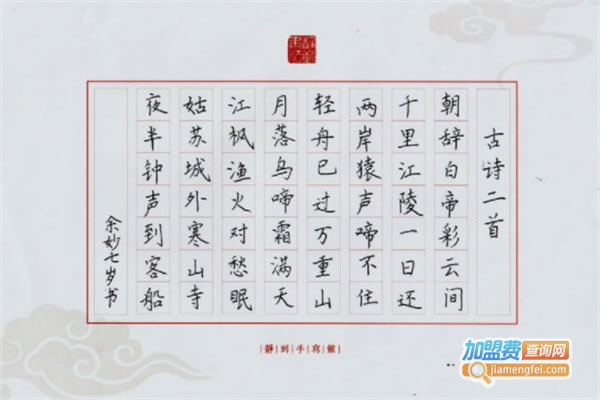 古诗二首
朝辞白帝彩云间
千里江陵一日还
两岸猿声啼不住
轻舟已过万重山
月落乌啼霜满天
江枫渔火对愁眠
姑苏城外寒山寺
夜半钟声到客船
余妙七岁书
静到手寫館
加盟费查询网
jiamengfei.com